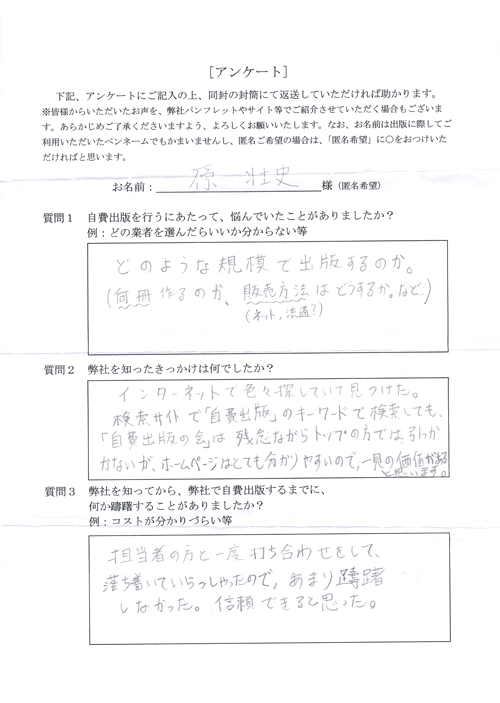 ［アンケート］
下記、アンケートにご記入の上、同封の封筒にて返送していただければ助かります。
※皆様からいただいたお声を、弊社パンフレットやサイト等でご紹介させていただく場合もございま
す。あらかじめご了承くださいますよう、よろしくお願いいたします。なお、お名前は出版に際してご
利用いただいたペンネームでもかまいませんし、匿名ご希望の場合は、「匿名希望」に○をおつけいた
だければと思います。
お名前： 原 壮史 様（匿名希望）
質問１ 自費出版を行うにあたって、悩んでいたことがありましたか？
例：どの業者を選んだらいいか分からない等
どのような規模で出版するのか。
(何冊作るのか、販売方法はどうするか。など)
(ネット，流通?)
質問２ 弊社を知ったきっかけは何でしたか？
インターネットで色々探していて見つけた。
検索サイトで「自費出版」のキーワードで検索しても、
「自費出版の会」は残念ながらトップの方では引っか
かないが、ホームページはとても分かりやすいので、一見の価値がある
と思います。
質問３ 弊社を知ってから、弊社で自費出版するまでに、
何か躊躇することがありましたか？
例：コストが分かりづらい等
担当者の方と一度打ち合わせをして、
落ち着いていらっしゃったので，あまり躊躇
しなかった。信頼できると思った。